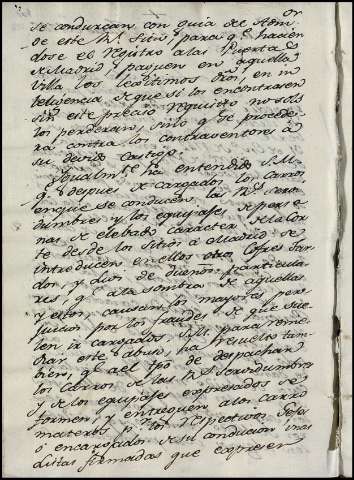 se conduzcan con guia del Adm.or
de este R.l Sitio para q.e hacien
dose el registro a las Puertas
de Madrid, paguen en aquella
Villa los legitimos dros, en in
teligencia de que si los encontrasen
sin este preciso requisito no solo
los perderan, sino q.e se procede
rá contra los contraventores á
su devido castigo.
Igualm.te ha entendido S.M.
q.e despues de cargados los Carros
en que se conducen las R.s servi
dumbres y los equipajes de perso
nas de elebado caracter de la Cor
te desde los Sitios á Madrid se
introducen en ellos otros Cofres, Far
dos, y Lios de Dueños particula
res, q.e a la sombra de aquellas
y estos, causan los mayores per
juicios por los fraudes de que sue
len ir cargados. S.M. para reme
diar este abuso, ha resuelto tam
bien, q.e al tpo de despachar
los Carros de las R.s Servidumbres
y de los equipajes expresados se
formen, y entreguen a los Carro
materos p.r los respectivos Gefes
ó encargados de su conducion unas
Listas firmadas que expresen